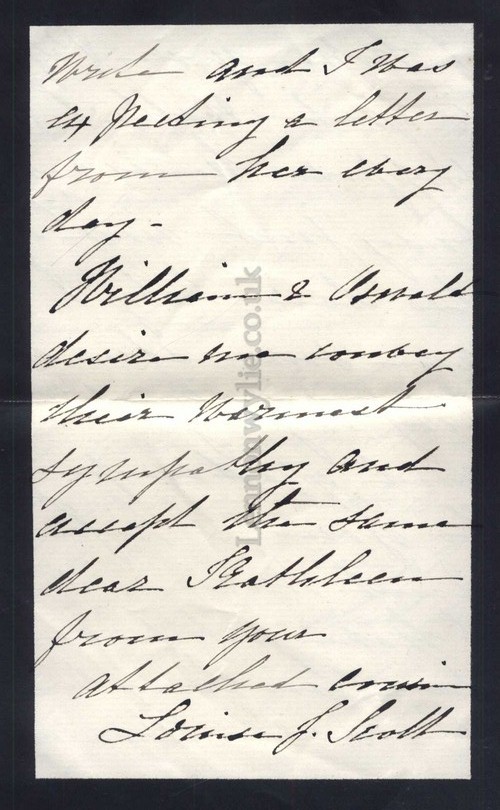 write and I was
expecting a letter
from her every
day -
William & Oswald
desire me convey
their warmest
sympathy and
accept the same
dear Kathleen
from your
attached cousin
Louise J. Scott
Lennonwylie.co.uk